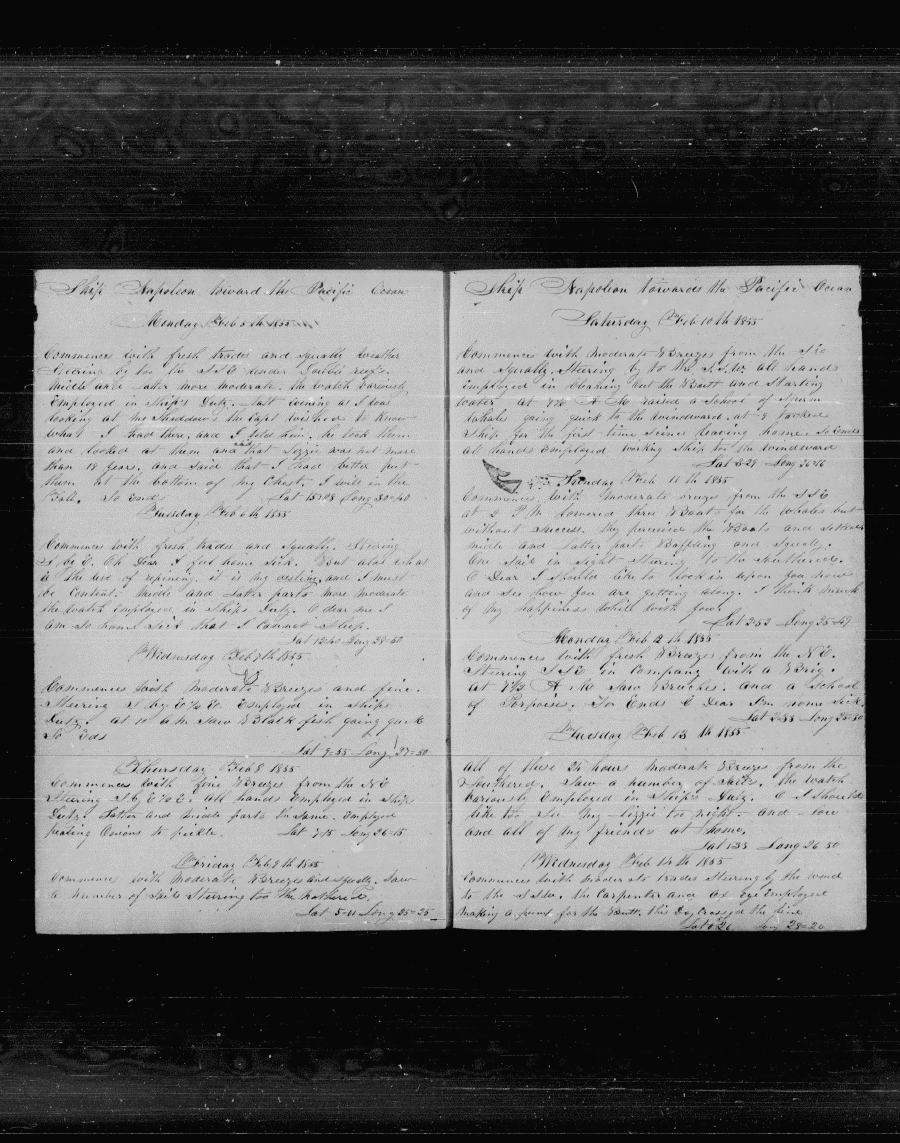 Ship Napoleon toward the Pacific Ocean
Monday Feb 5th 1855
Commences with fresh trades and squally weather
Steering by the S S E under Double reefs.
Middle and latter more moderate, the watch variously
Employed in Ship's Duty. Last evening as I was
looking at the Shaddow, the Capt wished to know
what I had there, and I told him, he took them
and looked at them and that Lizzie was not more
than 18 years, and said that I had better put
them at the bottom of my Chest. I will in the
So Ends Lat 15-08 Long 30-40
Tuesday Feb 6th 1855
Commences with fresh trades and Squally. Steering
S by E. Oh Dear I feel home Sick. But alas what
is the use of repining, it is my destiny and I must
be Content. Middle and Latter parts more moderate
the watch Employed in Ships Duty. O dear me I
am So home Sick that I Cannot Sleep.
Lat 12-40 Long 28-50
Wednesday Feb 7th 1855
Commences with Moderate Breezes and fine.
Steering S by E ½ E. Employed in Ships
Duty. at 10 A.M. Saw Black fish going quick
So Eds
Lat 9-55 Long 27-50
Thursday Feb 8 1855
Commences with fine Breezes from the N E
Steering S by E ½ E. All hands Employed in Ships
Duty. Latter and Middle parts the Same. Employed
pealing Onions to pickle. Lat 7-15 Long 26-15
Friday Feb 9th 1855
Commences with Moderate Breezes and Squally, Saw
a number of Sails Steering too the Northered.
Lat 5-11 Long 25-25
Ship Napoleon towards the Pacific Ocean
Saturday Feb 10th 1855
Commences with Moderate Breezes from the S E
and Squally. Steering by to the S.S.W. all hands
employed in Cleaning out the Butt and Starting
water. at 7½ A M raised a School of Sperm
Whales going quick to the windward. at 9 tacked
Ship for the first time since leaving home. So Ends
all hands Employed working Ship too the windward
Lat 3-29 Long 26-16
Sunday Feb 11th 1855
Commences with Moderate breezes from the S S E
at 2 P M lowered three Boats for the whales but
without Success.
middle and latter parts Baffling and Squally.
One Sail in Sight Steering to the Southward.
O Dear I should like to look in upon you now
and See how you are getting along. I think much
of my happiness while with you.
Lat 2-52 Long 25-49
Monday Feb 12th 1855
Commences with fresh Breezes from the N E.
Steering S S E in Company with a Brig.
At 7½ A M Saw Breeches. and a School
of Porpoises. So Ends O Dear I'm home Sick
Lat 2-33 Long 25-50
Tuesday Feb 13th 1855
All of these 24 hours moderate Breezes from the
Southered. Saw a number of Sails. the watch
variously Employed in Ships Duty. O I should
like too See My Lizzie too night. and
and all of my friends at home.
Lat 1-33 Long 26-50
Wednesday Feb 14th 1855
Commences with moderate trades Steering by the wind
to the S S W. the Carpenter and Employed
making a for the Butt. this Day Crossed the line
Long 28-20